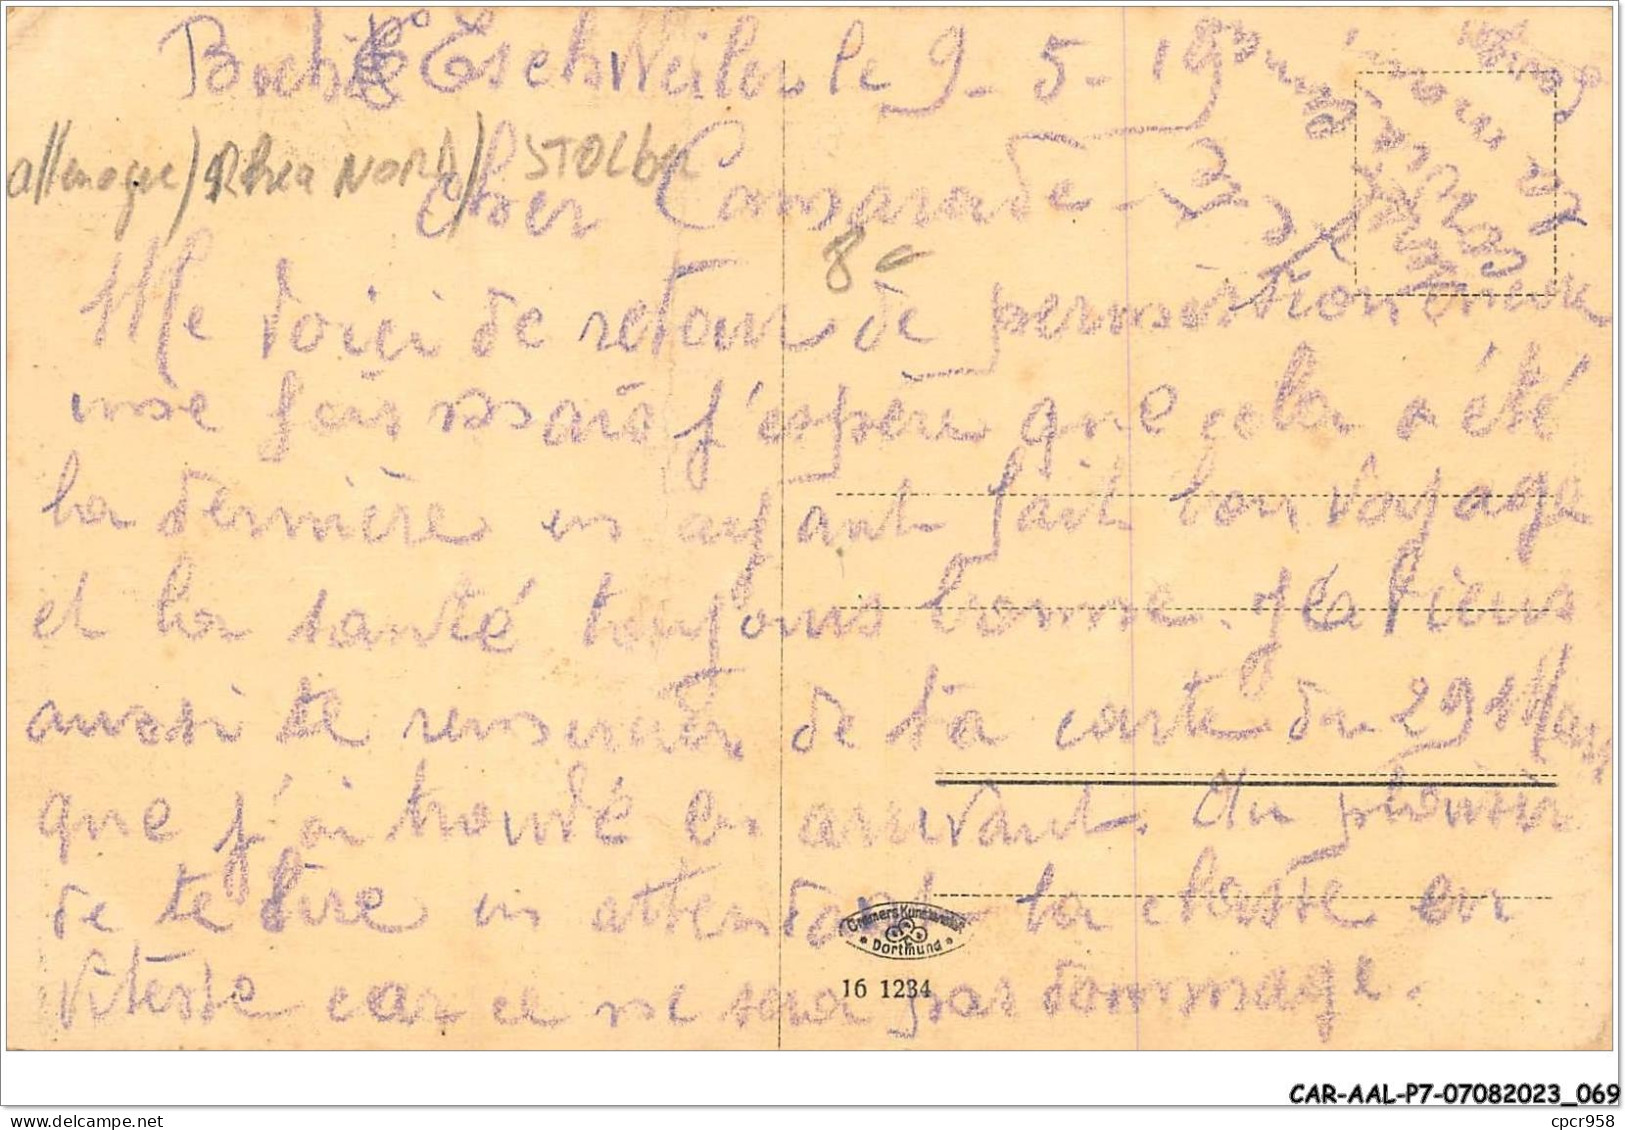 Eschweiler le 9-5-19
allemagne) Rhea NORD/ STOLber
cher Camarade
8€
Me voici de retour de permission encore
une fois mais j'espère que cela a été
la dernière en ayant fait bon voyage
et la santé toujours bonne. je tiens
aussi te remercier de ta carte du 29 Mars
que j'ai trouvé en arrivant. Au plaisir
de te lire en attendant la classe en
vitesse car ce ne sera pas dommage.
Cramers Kunstanstalt
Dortmund
16 1234
CAR-AAL-P7-07082023_069
cpcr958